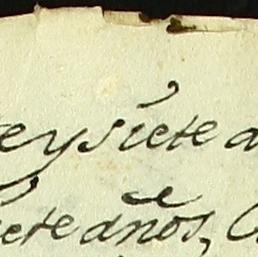 eysiete a
iete años,